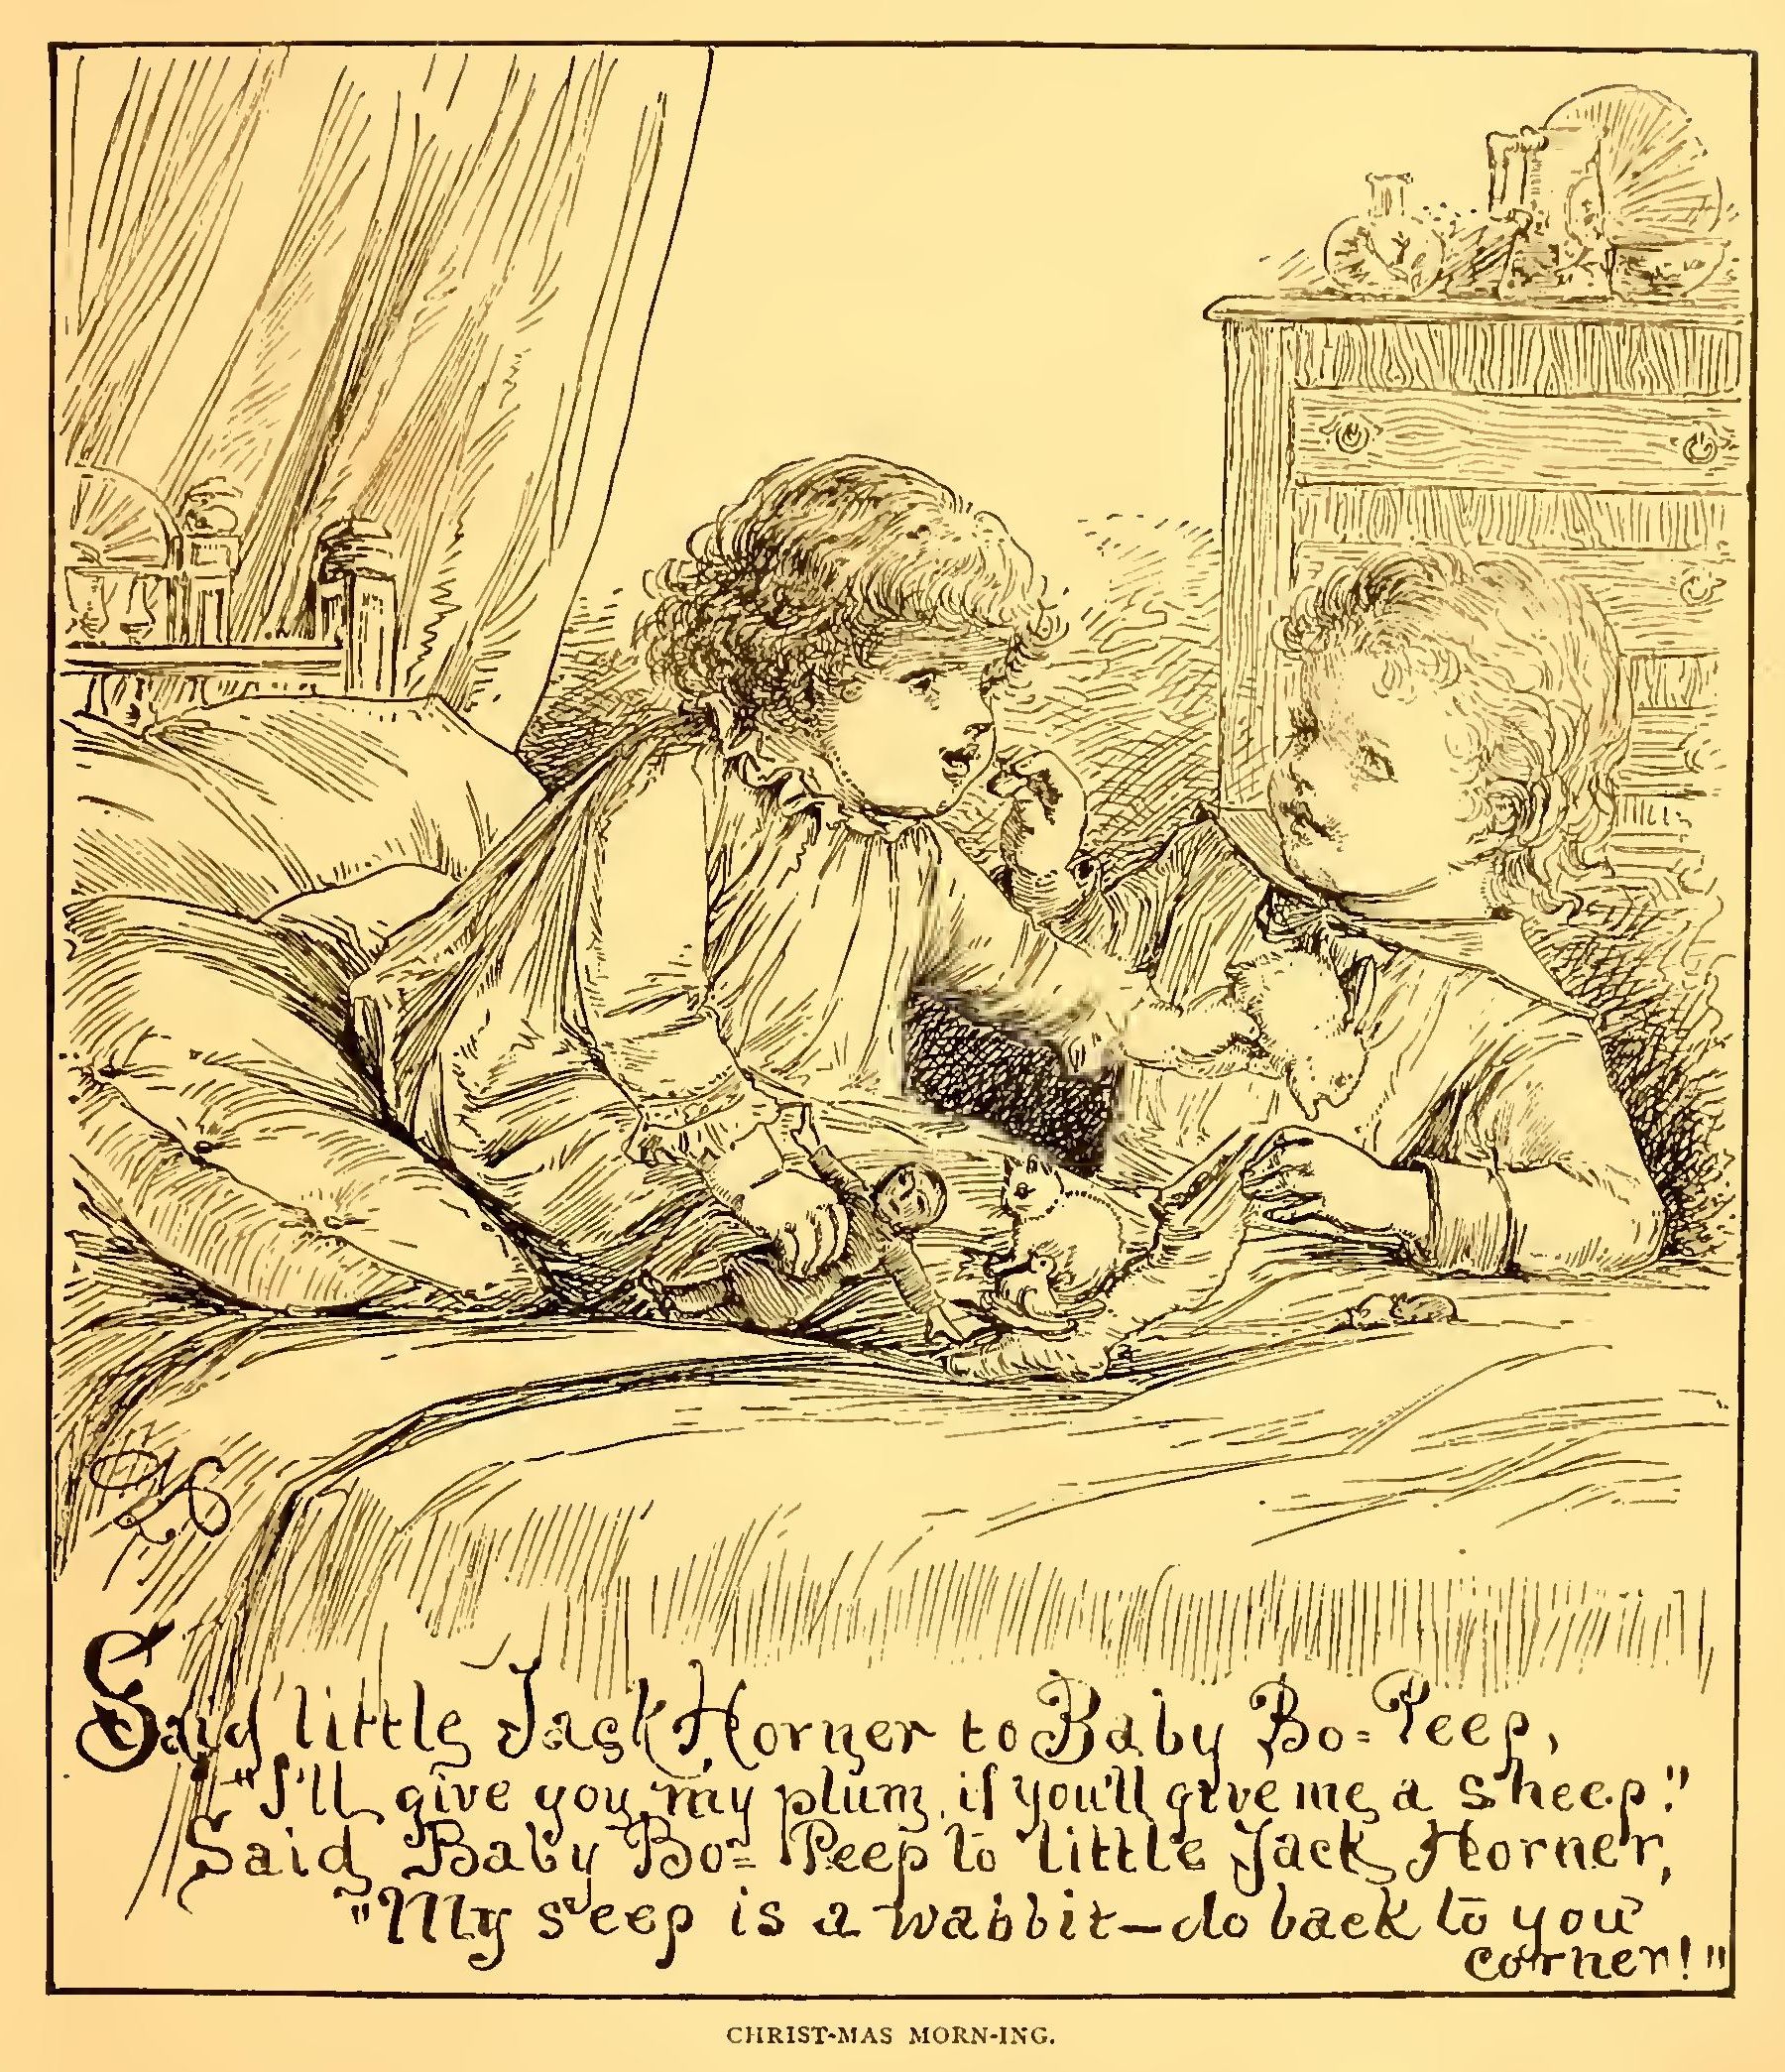 Said little Jack Horner to Baby Bo=Peep,
"I'll give you my plum, if you'll give me a sheep."
Said Baby Bo=Peep to little Jack Horner,
"My s'eep is a wabbit—do back to you'
corner!"
CHRIST-MAS MORN-ING.